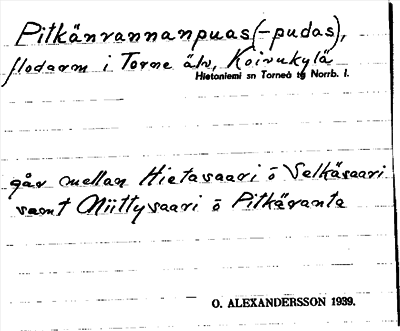 Pitkänrannanpuas (-pudas),
flodarm i Torne älv, Koivukylä
Hietaniemi sn Torneå tg Norrb. l.
går mellan Hietasaari o Selkäsaari
samt Niittysaari o Pitkäranta
O. ALEXANDERSSON 1939.